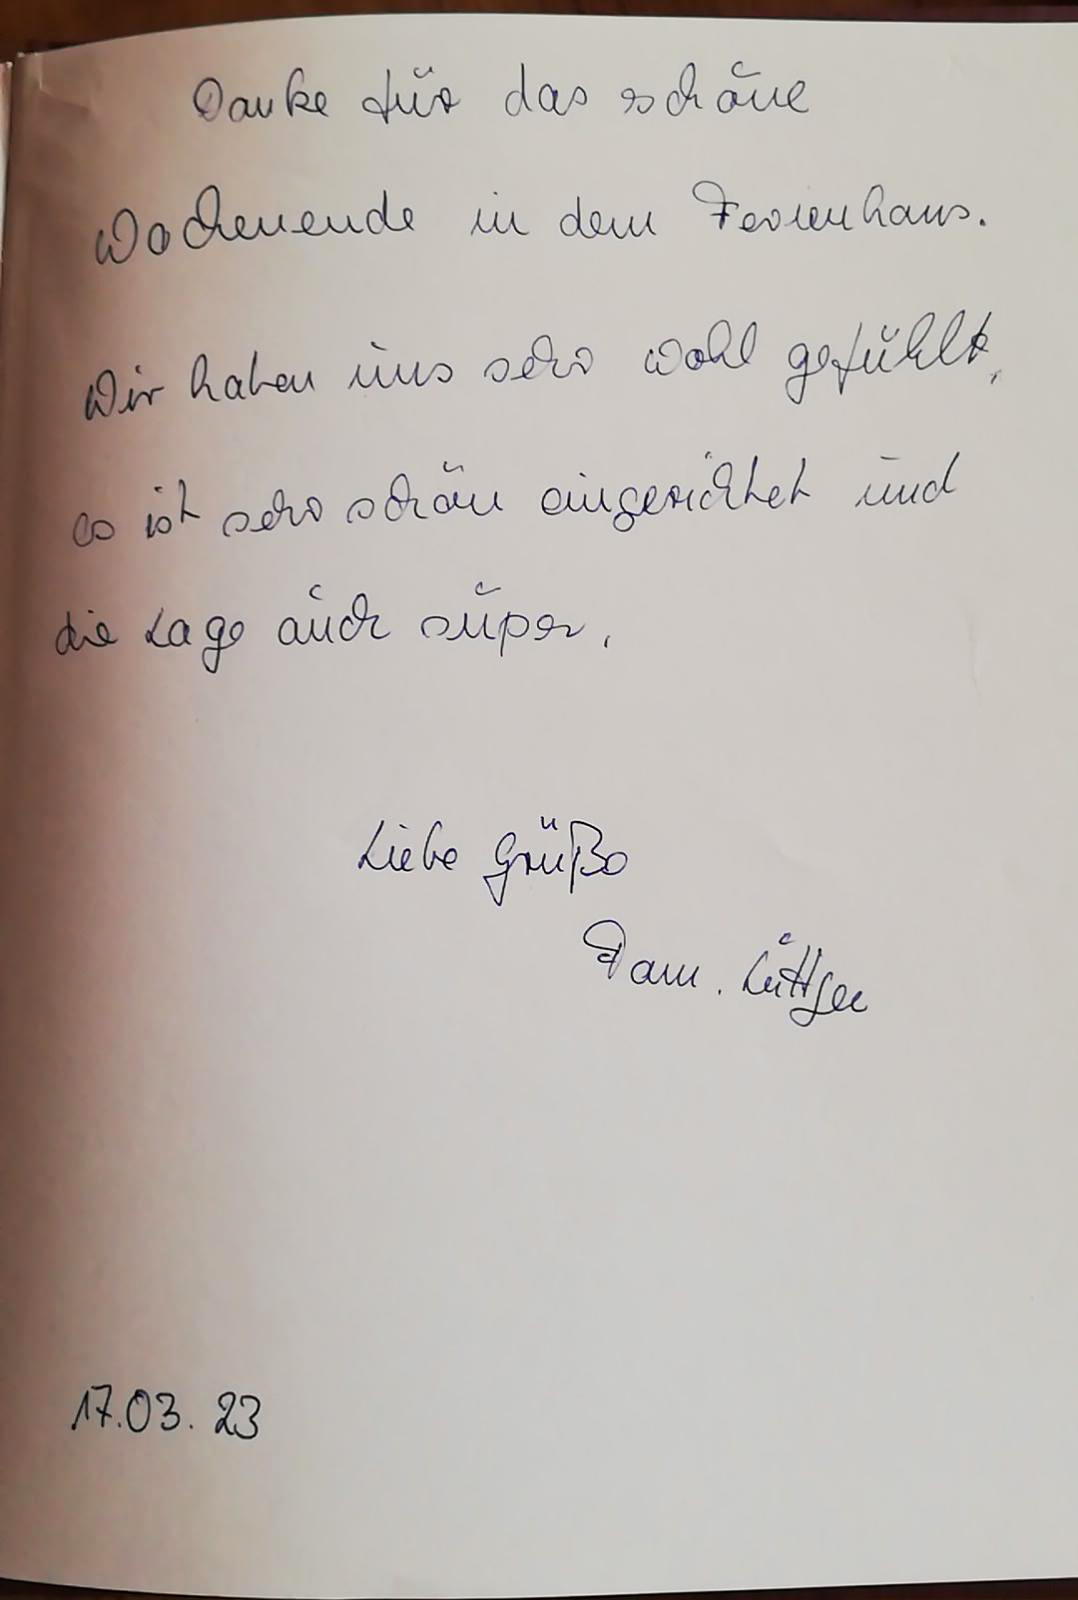 Danke für das schöne
Wochenende in dem Ferienhaus.
Wir haben uns sehr wohl gefühlt,
es ist sehr schön eingerichtet und
die Lage auch super.
Liebe Grüße
Fam.
17.03.23